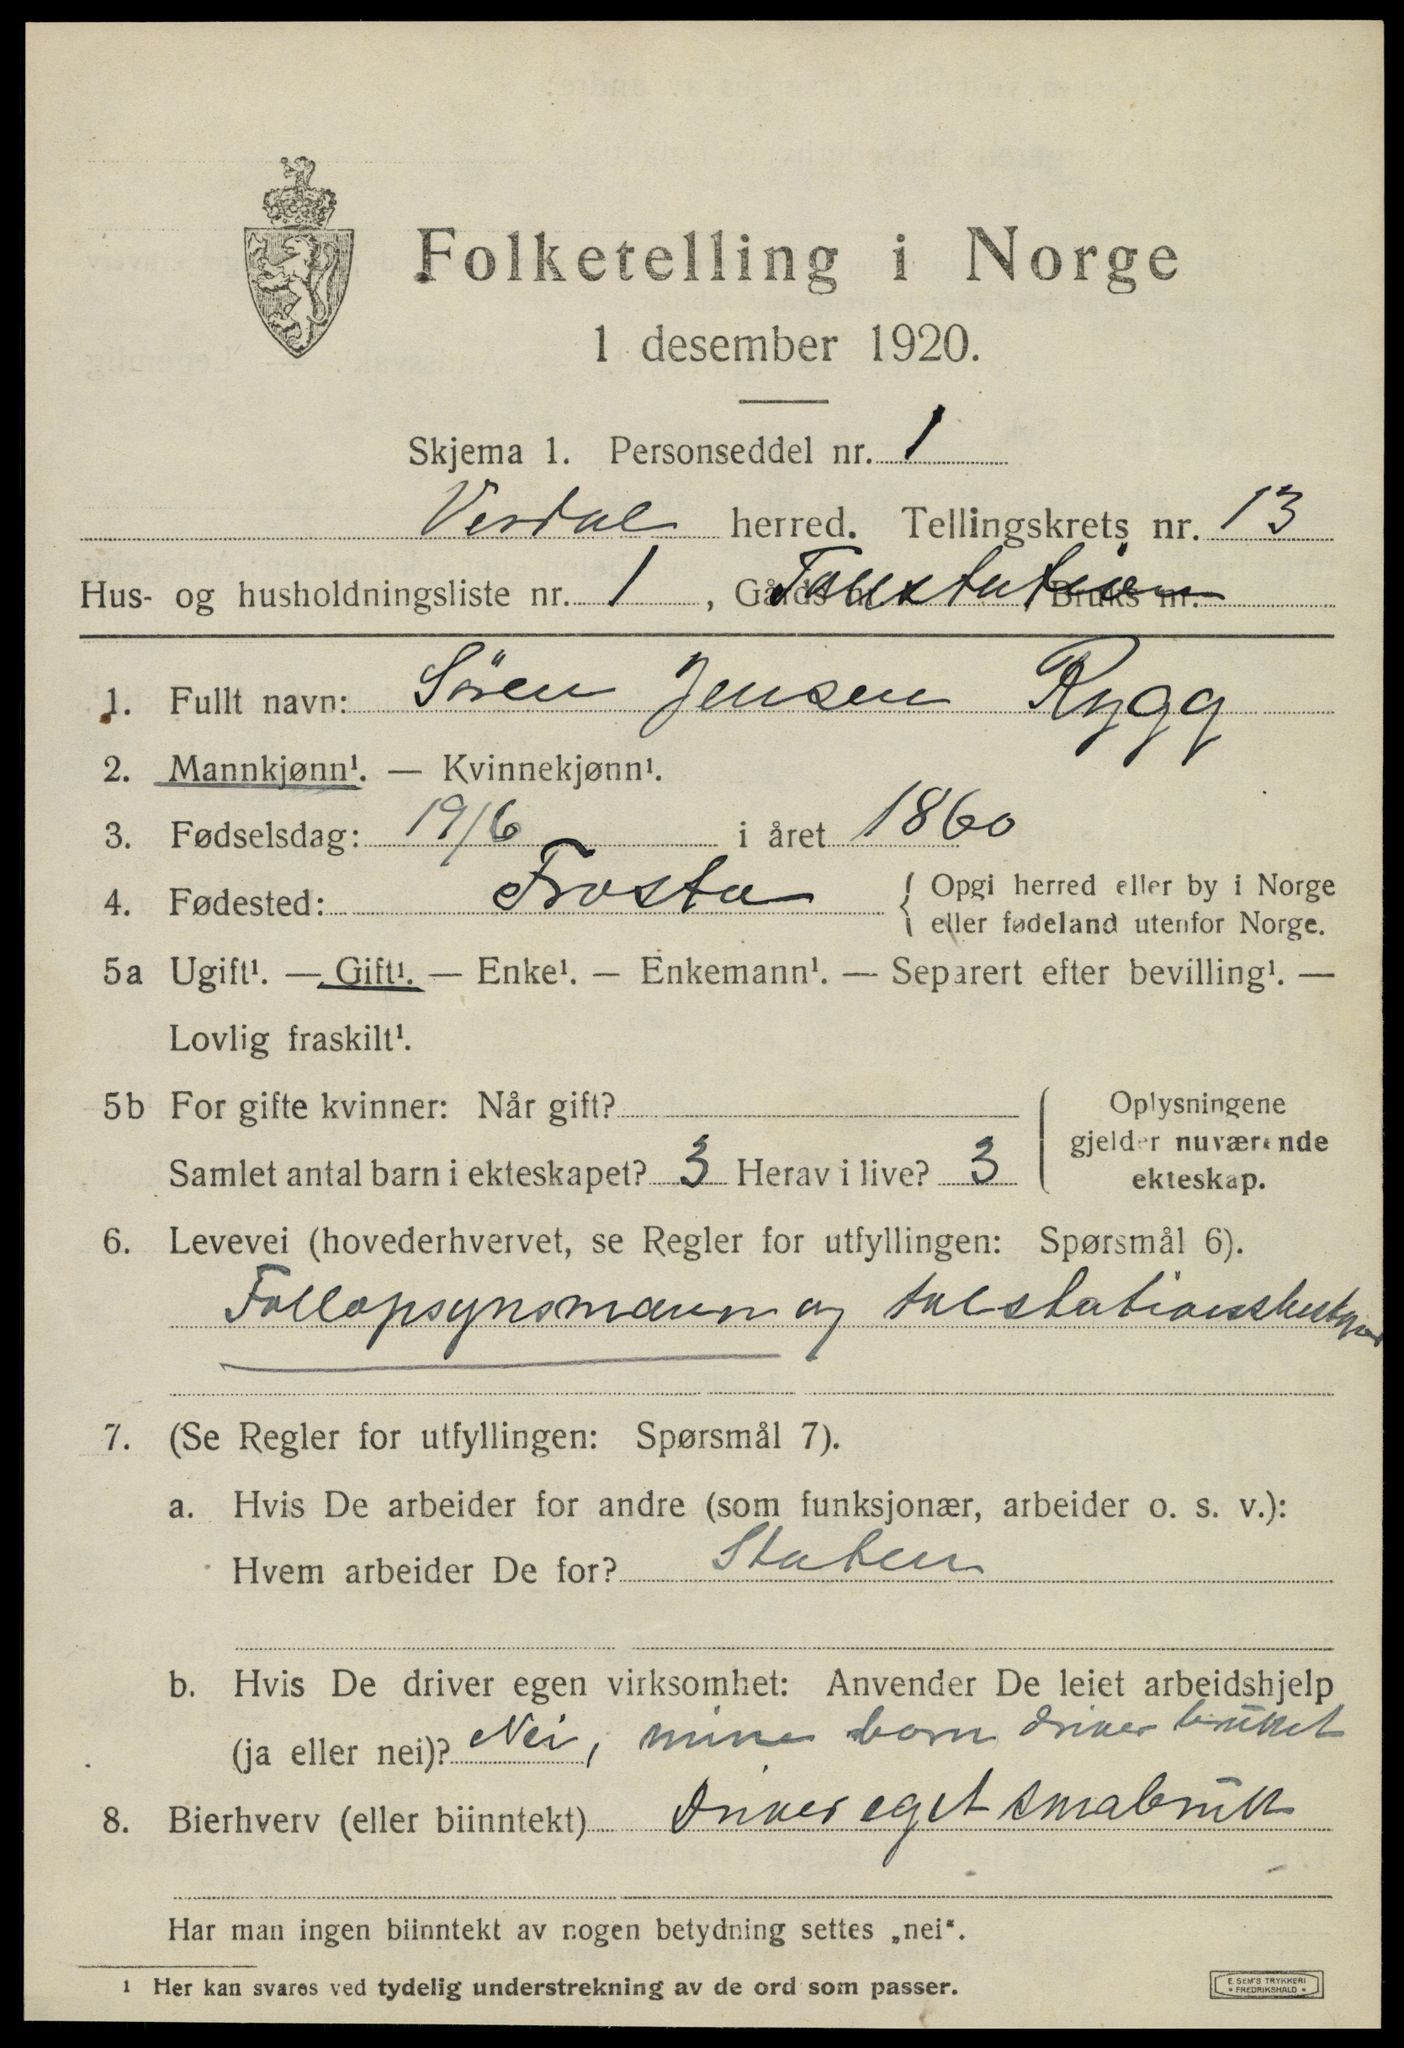 Folketelling i Norge
1 desember 1920.
Skjema 1. Personseddel nr. 1
Verdal herred. Tellingskrets nr. 13
Hus- og husholdningsliste nr. 1, Gårds nr. Tollstation Bruks nr.
1. Fullt navn: Sören Jensen Rygg
2. Mannkjønn¹. — Kvinnekjønn¹.
3. Fødselsdag: 19/6 i året 1860
4. Fødested: Frosta { Opgi herred eller by i Norge
eller fødeland utenfor Norge.
5a Ugift¹. — Gift¹. — Enke¹. — Enkemann¹. — Separert efter bevilling¹. —
Lovlig fraskilt¹.
5b For gifte kvinner: Når gift?
Samlet antal barn i ekteskapet? 3 Herav i live? 3
Oplysningene
gjelder nuværende
ekteskap.
6. Levevei (hovederhvervet, se Regler for utfyllingen: Spørsmål 6).
Tollopsynsmann og tolstationsbestyrer
7. (Se Regler for utfyllingen: Spørsmål 7).
a. Hvis De arbeider for andre (som funksjonær, arbeider o. s. v.):
Hvem arbeider De for? Staten
b. Hvis De driver egen virksomhet: Anvender De leiet arbeidshjelp
(ja eller nei)? Nei, mine born driver bruket
8. Bierhverv (eller biinntekt) driver eget smabruk
Har man ingen biinntekt av nogen betydning settes „nei“.
¹ Her kan svares ved tydelig understrekning av de ord som passer.
E. SEM'S TRYKKERI
FREDRIKSHALD